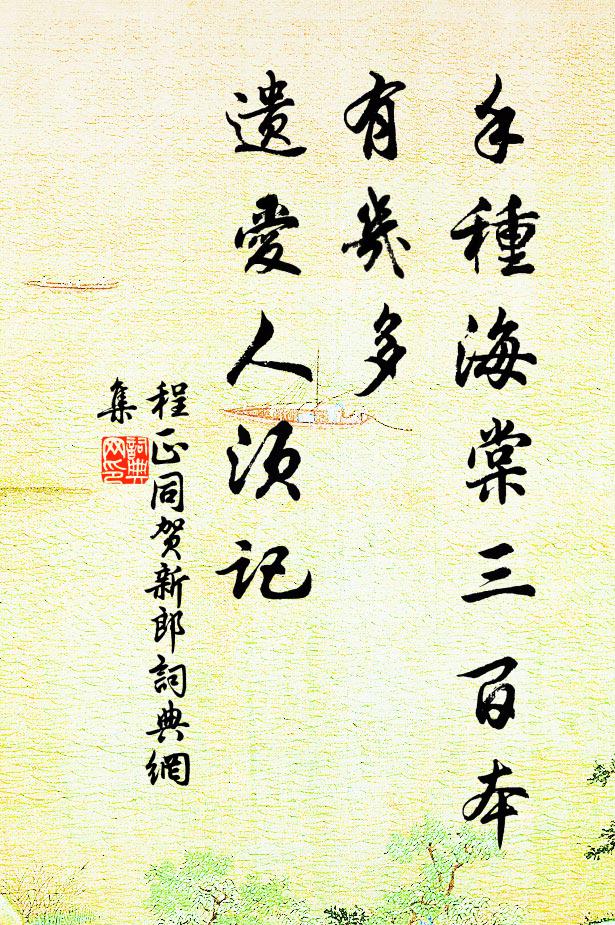 手種海棠三百本
有幾多
遺愛人須記
程正同賀新郎詞典網
集
詞典
网印